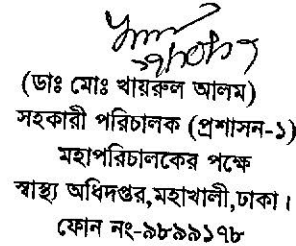 (ডাঃ মোঃ খায়রুল আলম)
সহকারী পরিচালক (প্রশাসন-১)
মহাপরিচালকের পক্ষে
স্বাস্থ্য অধিদপ্তর,মহাখালী,ঢাকা।
ফোন নং-৯৮৯৯১৭৮